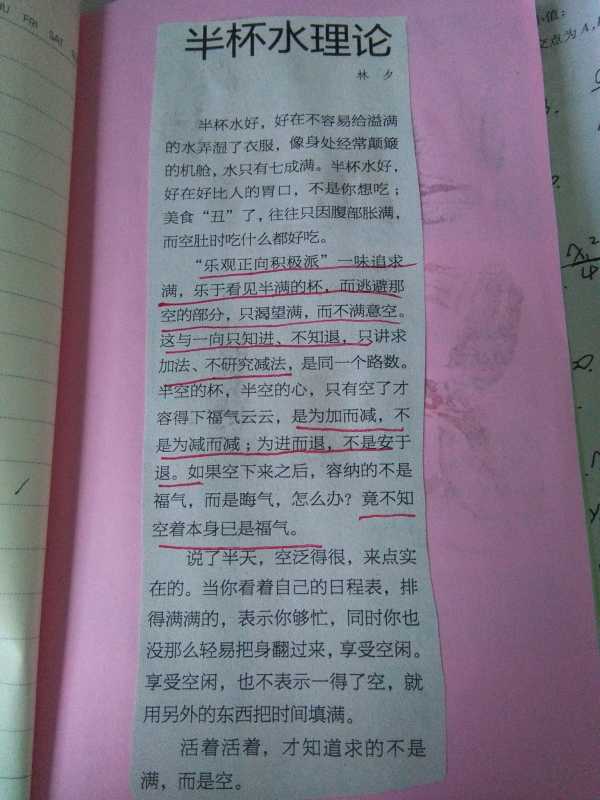 U FRI SAT
半杯水理论
林 夕
半杯水好，好在不容易给溢满
的水弄湿了衣服，像身处经常颠簸
的机舱，水只有七成满。半杯水好，
好在好比人的胃口，不是你想吃；
美食“丑”了，往往只因腹部胀满，
而空肚时吃什么都好吃。
“乐观正向积极派”一味追求
满，乐于看见半满的杯，而逃避那
空的部分，只渴望满，而不满意空。
这与一向只知进、不知退，只讲求
加法、不研究减法，是同一个路数。
半空的杯，半空的心，只有空了才
容得下福气云云，是为加而减，不
是为减而减；为进而退，不是安于
退。如果空下来之后，容纳的不是
福气，而是晦气，怎么办？竟不知
空着本身已是福气。
说了半天，空泛得很，来点实
在的。当你看着自己的日程表，排
得满满的，表示你够忙，同时你也
没那么轻易把身翻过来，享受空闲。
享受空闲，也不表示一得了空，就
用另外的东西把时间填满。
活着活着，才知道求的不是
满，而是空。
值：
交点为A,